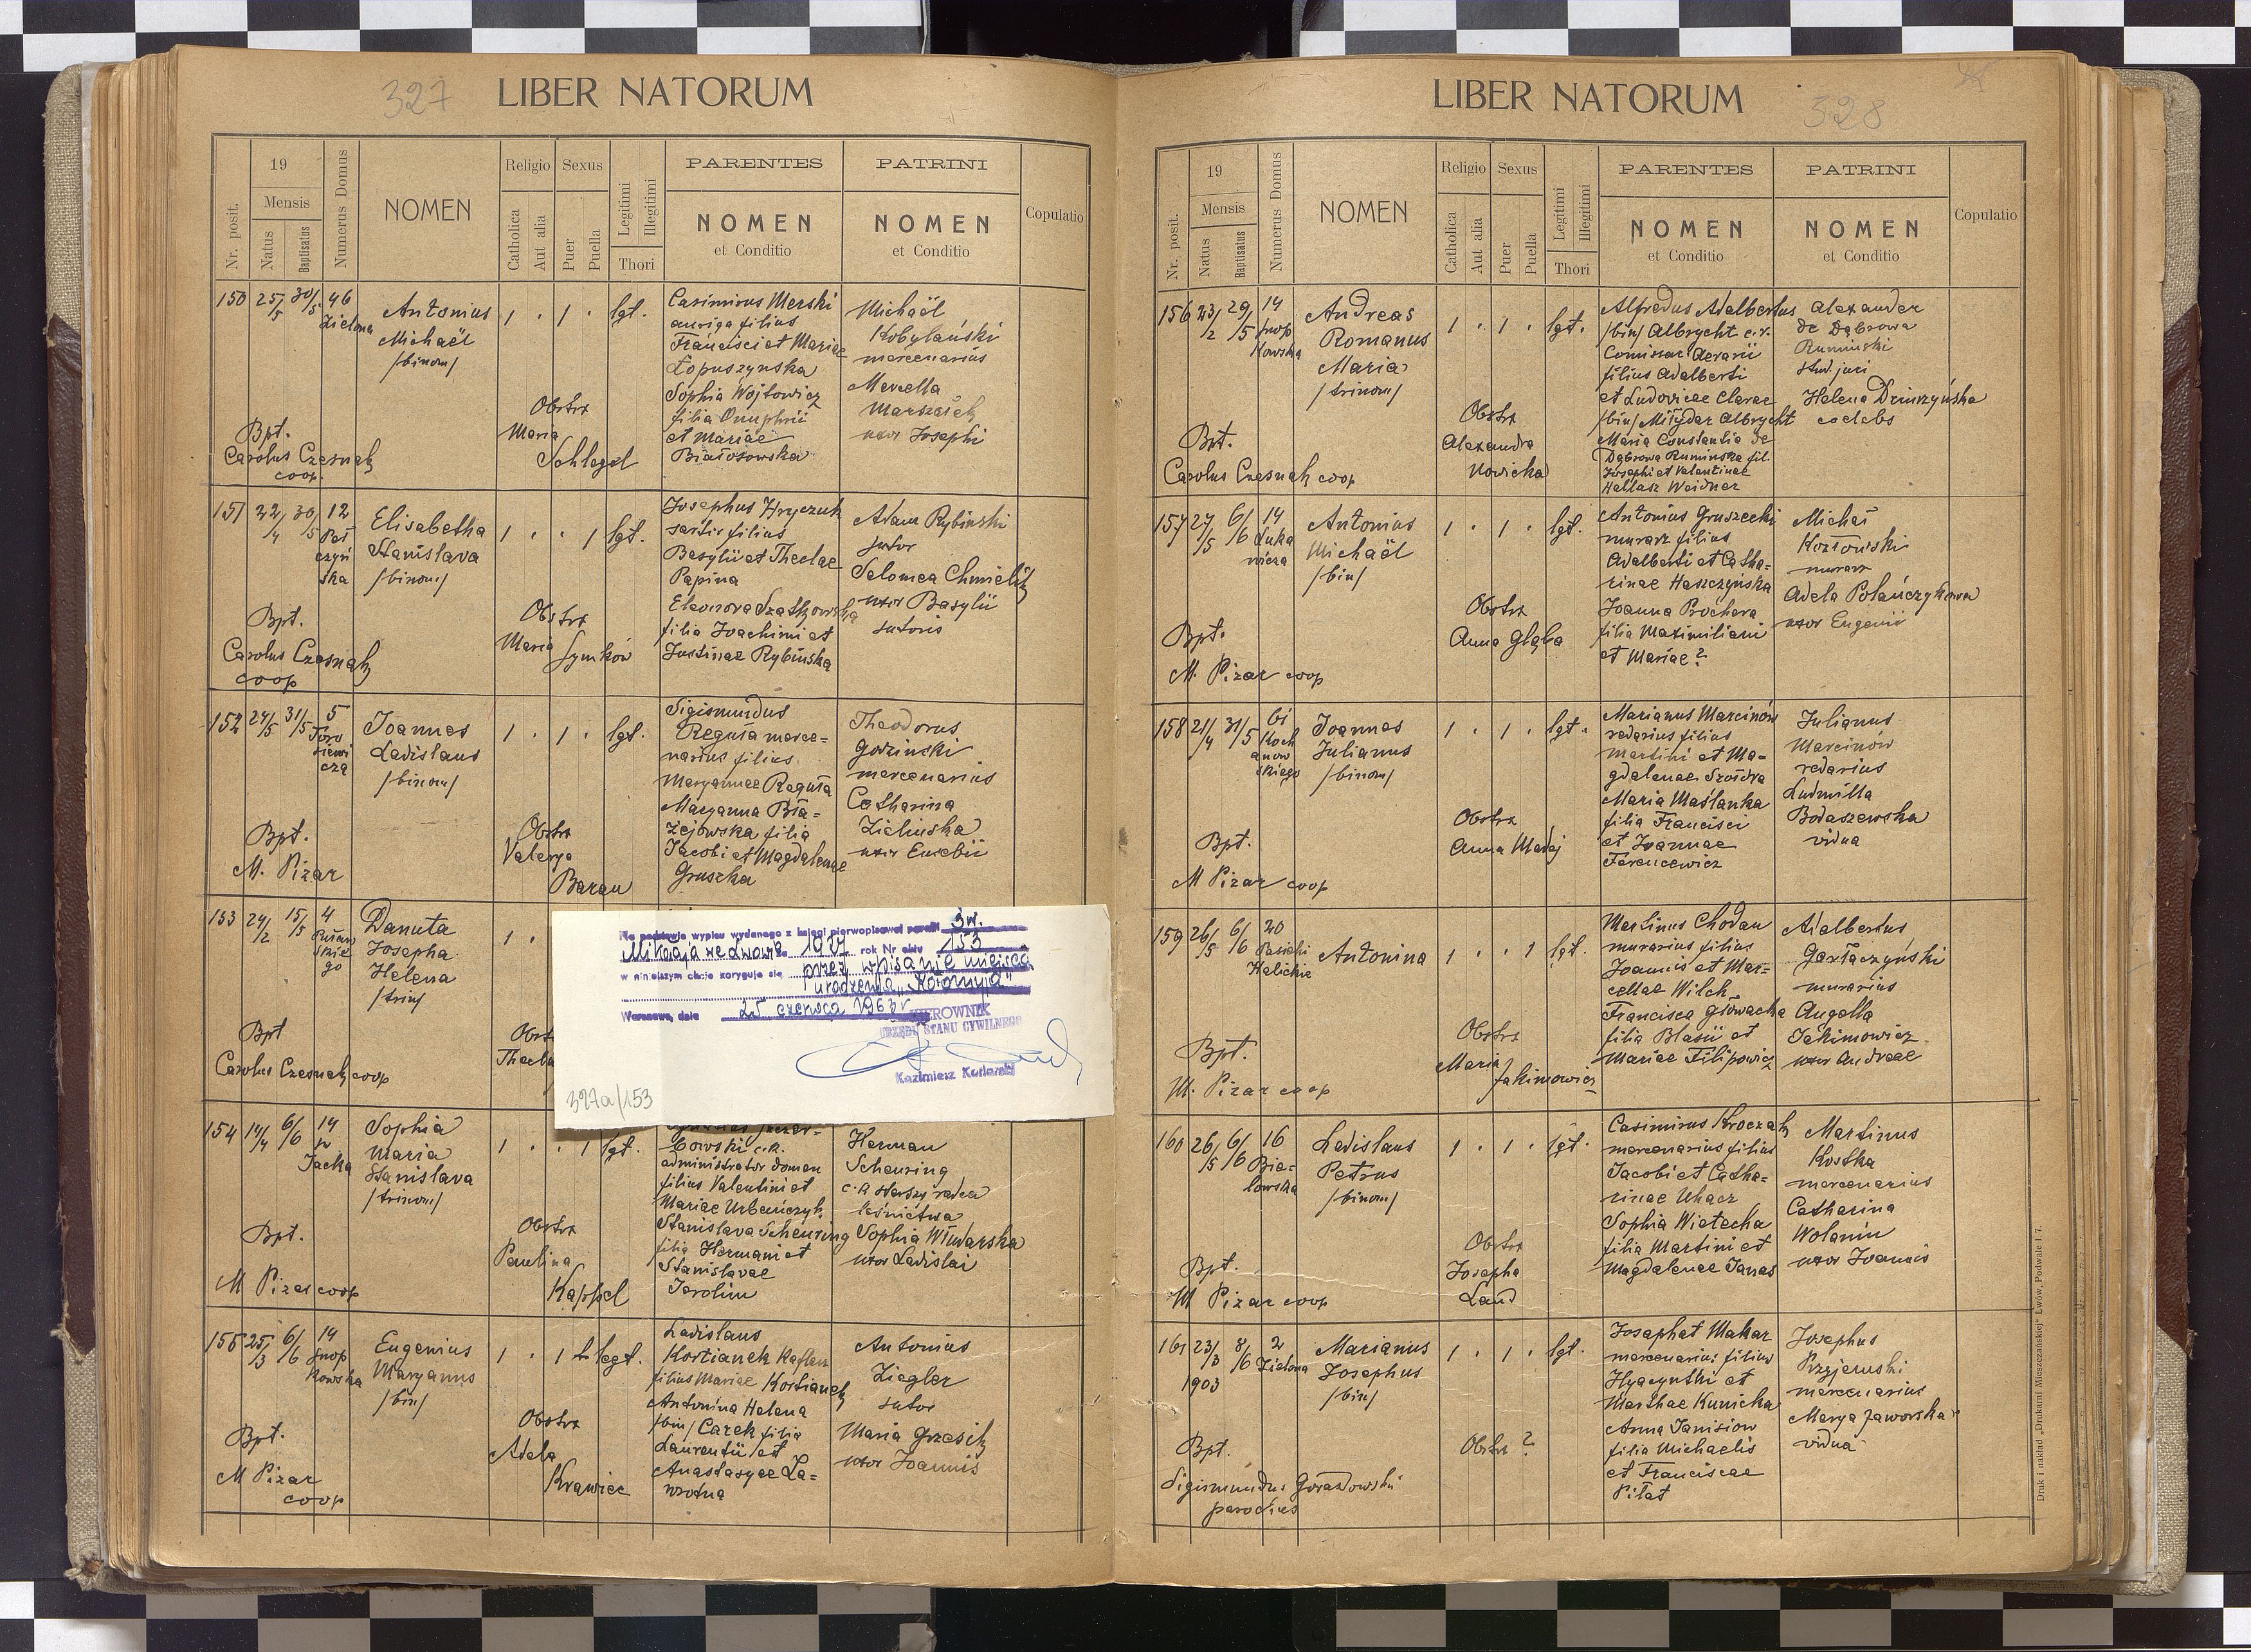 327
LIBER NATORUM
Nr. posit.
19
Mensis
Natus
Baptisatus
Numerus Domus
NOMEN
Religio
Catholica
Aut alia
Sexus
Puer
Puella
Legitimi
Illegitimi
Thori
PARENTES
NOMEN
et Conditio
PATRINI
NOMEN
et Conditio
Copulatio
150 25/5 30/5 46
Zielona
Antonius
Michaël
/binom/
1 . 1 . lgt.
Casimirus Merski
auriga filius
Francisci et Mariae
Łopuszyńska
Sophia Wojtowicz
filia Onuphrii
et Mariae
Białosowska
Michaël
Kobylański
mercenarius
Marcella
Marszałek
uxor Josephi
Obstrx
Maria
Schlegel
Bpt.
Carolus Czesnak
coop.
151 22/4 30/5 12
Elisabetha
Stanislava
/binom/
1 . . 1 lgt.
Josephus Hryczuk
sartor filius
Basylii et Theclae
Papina
Eleonora Szatkowska
filia Joachimi et
Justinae Rybińska
Adam Rybiński
sutor
Salomea Chmielik
uxor Basylii
sutoris
Obstrx
Maria
Symków
Bpt.
Carolus Czesnak
coop
152 24/5 31/5 5
Joannes
Ladislaus
/binom/
1 . 1 . lgt.
Sigismundus
Reguła merce=
narius filius
Maryannae Reguła
Maryanna Bła=
żejowska filia
Jacobi et Magdalenae
Gruszka
Theodorus
Godziński
mercenarius
Catharina
Zielińska
uxor Eusebii
Obstrx
Valerya
Baran
Bpt.
M. Pizar
153 24/2 15/5 4
Danuta
Josepha
Helena
/trin/
1 .
Obstr
Thecla
Bpt
Carolus Czesnak coop
Na podstawie wypisu wydanego z księgi pierwopisowej parafii św.
Mikołaja we Lwowie za 1927 rok Nr aktu 153
w niniejszym akcie koryguje się przez wpisanie miejsca
urodzenia „Kołomyja"
Warszawa, dnia 25 czerwca 1963 r
KIEROWNIK
URZĘDU STANU CYWILNEGO
Kazimierz
327a/153
154 14/4 6/6 14
Jacka
Sophia
Maria
Stanislava
/trinom/
1 . . 1 lgt.
administrator doman
filius Valentini et
Mariae Urbańczyk
Stanislava Scheuring
filia Hermani et
Stanislavae
Jarolim
Herman
Scheuring
c.r. starszy radca
leśnictwa
Sophia Windarska
uxor Ladislai
Obstrx
Paulina
Kappel
Bpt.
M Pizar coop
155 25/3 6/6 14
Snop
kowska
Eugenius
Maryanus
/bin/
1 . 1 legt.
Ladislaus
Kortianek
filius Mariae Kortianek
Antonina Helena
/bin/ Carek filia
Laurentii et
Anastasyae Za=
wrotna
Antonius
Ziegler
sutor
Maria Grzesik
uxor Joannis
Obstrx
Adela
Krawiec
Bpt.
M Pizar
coop
LIBER NATORUM
328
Nr. posit.
19
Mensis
Natus
Baptisatus
Numerus Domus
NOMEN
Religio
Catholica
Aut alia
Sexus
Puer
Puella
Legitimi
Illegitimi
Thori
PARENTES
NOMEN
et Conditio
PATRINI
NOMEN
et Conditio
Copulatio
156 23/2 29/5 14
Snop
kowska
Andreas
Romanus
Maria
/trinom/
1 . 1 . lgt.
Alfredus Adalbertus
/bin/ Albrycht c.r.
Comissar Aerarii
filius Adalberti
et Ludovicae Clarae
/bin/ Albrycht
Maria Constantia de
Dąbrowa Rumińska fil.
Josephi et Valentinae
Hellasz Weidner
Alexander
de Dąbrowa
Rumiński
stud. juri
Helena Druszyńska
coelebs
Obstrx
Alexandra
Nowicka
Bpt.
Carolus Czesnak coop
157 27/5 6/6 14
Antonius
Michaël
/bin/
1 . 1 . lgt.
Antonius Gruszecki
murarz filius
Adalberti et Catha=
rinae Haszczyńska
Joanna Prochera
filia Maximiliani
et Mariae?
Michał
Kozłowski
murarz
Adela Polańczykowa
uxor Eugenii
Obstrx
Anna Głąba
Bpt.
M. Pizar coop
158 21/4 31/5 61
Koch
anow
skiego
Joannes
Julianus
/binom/
1 . 1 . lgt.
Marianus Marcinów
redarius filius
Martini et Ma=
gdalenae Szostra
Maria Maślanka
filia Francisci
et Joannae
Ferencewicz
Julianus
Marcinów
redarius
Ludmilla
Bodaszewska
vidua
Obstrx
Anna Madej
Bpt.
M Pizar coop
159 26/5 6/6 20
Pasieki
Halickie
Antonina
1 . . 1 lgt.
Martinus Chodan
murarius filius
Joannis et Mar=
cellae Wilch
Francisca Głowacka
filia Blasii et
Mariae Filipowicz
Adalbertus
Garłaczyński
murarius
Angella
Jakimowicz
uxor Andreae
Obstrx
Maria
Jakimowicz
Bpt.
M. Pizar coop
160 26/5 6/6 16
Bie=
lowska
Ladislaus
Petrus
/binom/
1 . 1 . lgt.
Casimirus Kroczak
mercenarius filius
Jacobi et Catha=
rinae Uhacz
Sophia Wietecha
filia Martini et
Magdalenae Janas
Martinus
Kostka
mercenarius
Catharina
Wolanin
uxor Joannis
Obstrx
Josepha
Land
Bpt.
M Pizar coop
161 23/3 8/6 2
1903 Zielona
Marianus
Josephus
/bin/
1 . 1 . lgt.
Josephat Makar
mercenarius filius
Hyacynthi et
Marthae Kunicka
Anna Janisiow
filia Michaelis
et Franciscae
Piłat
Josephus
Przyjemski
mercenarius
Marya Jaworska
vidua
Obstr ?
Bpt.
Sigismundus Gorazdowski
parochus
Druk i nakład „Drukarni Mieszczańskiej" Lwów, Podwale l. 7.